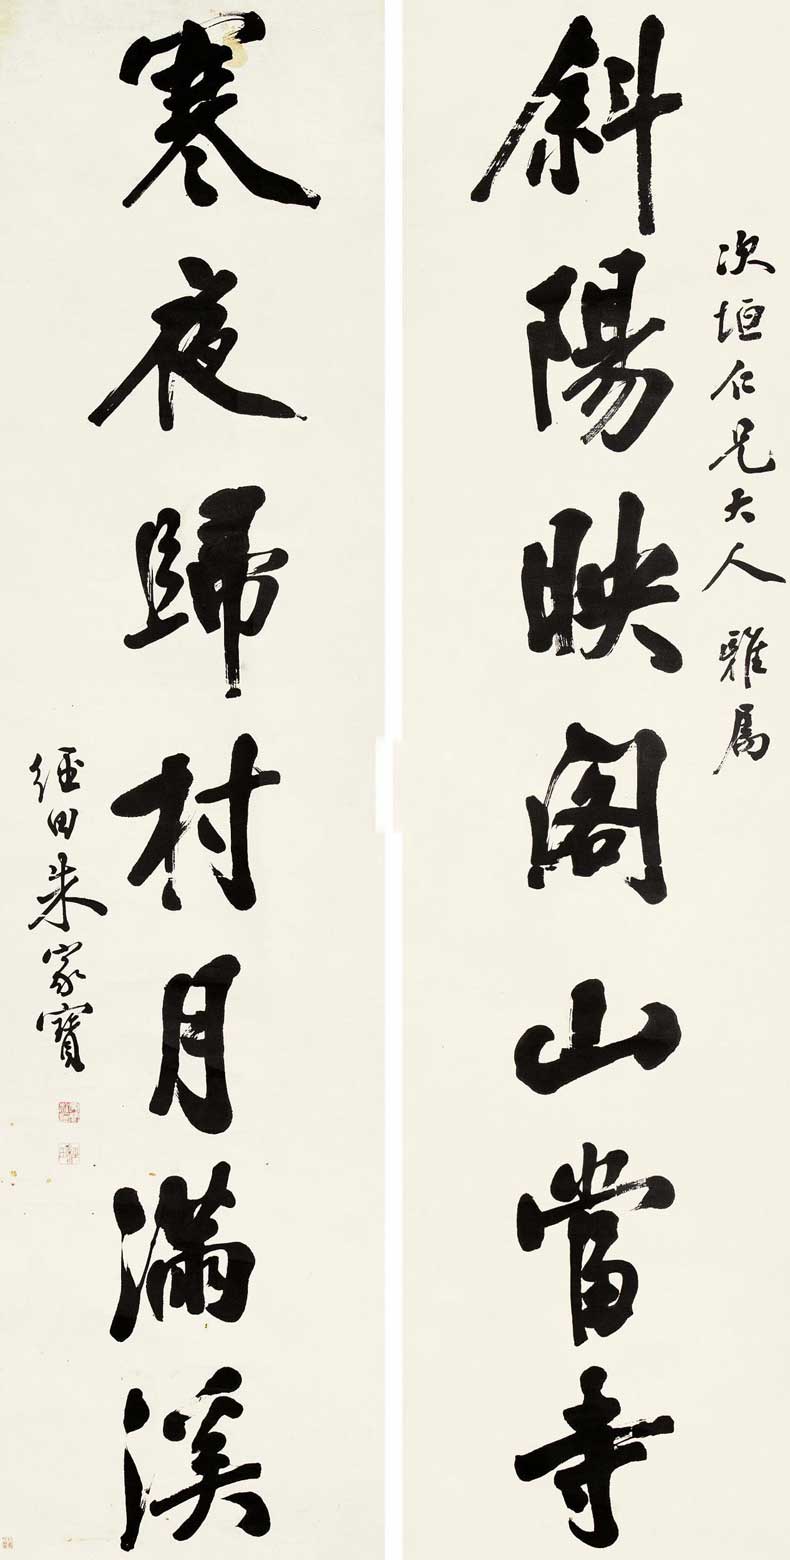 次垣仁兄大人雅属
斜陽映阁山當寺
寒夜歸村月滿溪
經田朱家寶